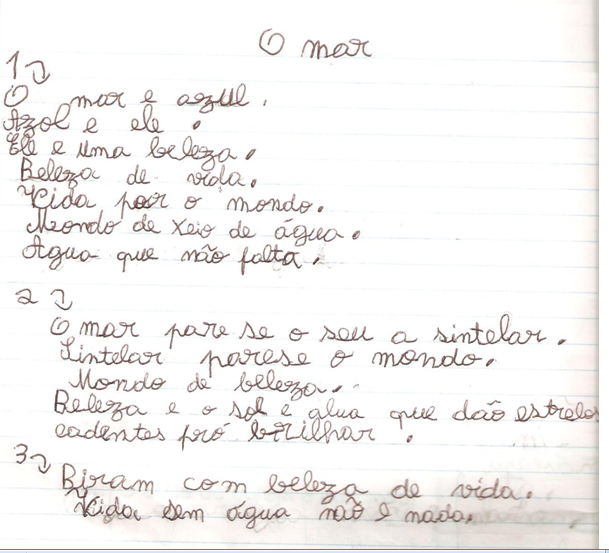 O mar
1
O mar e azul.
Azol e ele.
Ele e uma beleza.
Beleza de vida.
Vida por o mondo.
Mondo de xeio de água.
Agua que não falta.
2
O mar pare se o seu a sintelar.
Sintelar parese o mondo.
Mondo de beleza.
Beleza e o sol e alua que dão estrelas
cadentes pró brilhar.
3
Biram com beleza de vida.
Vida sem água não é nada.